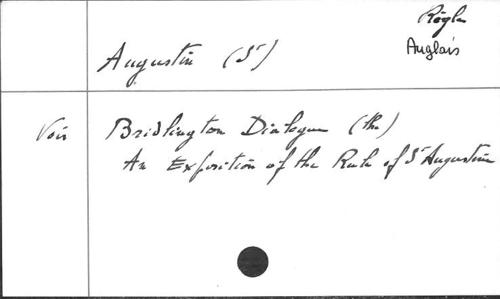 Règle
Anglais
Augustin (St)
Voir Bridlington Dialogue (the)
An Exposition of the Rule of St Augustine